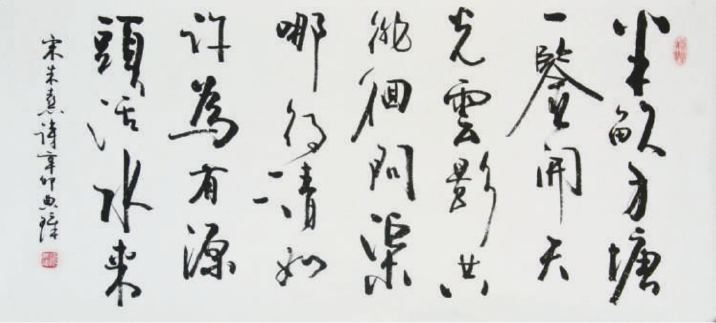 半畝方塘
一鑒開天
光雲影共
徘徊問渠
哪得清如
許為有源
頭活水來
宋朱熹詩辛卯